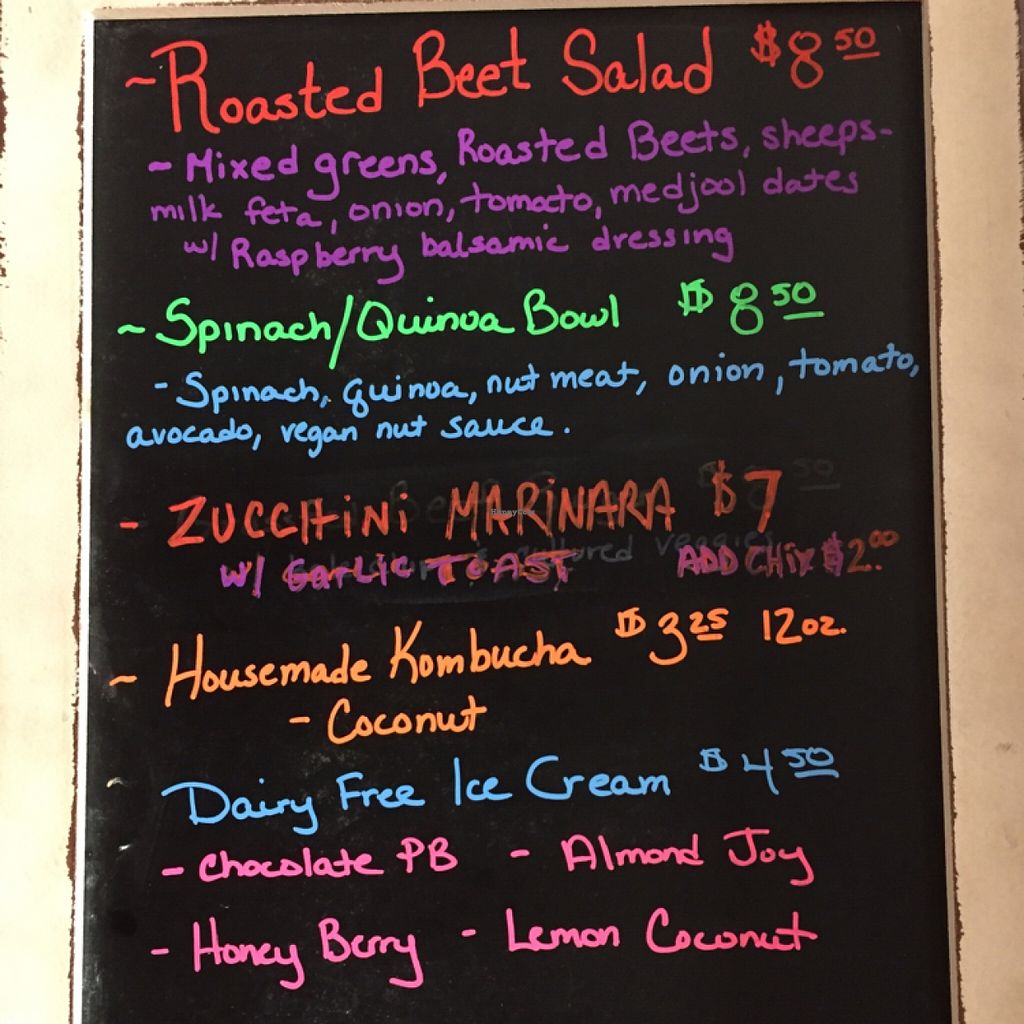 ~ Roasted Beet Salad $8 50
~ Mixed greens, Roasted Beets, sheeps-
milk feta, onion, tomato, medjool dates
w/ Raspberry balsamic dressing
~ Spinach/Quinoa Bowl $8 50
- Spinach, quinoa, nut meat, onion, tomato,
avocado, vegan nut sauce.
- ZUCCHINI MARINARA $7
w/ GARLIC TOAST ADD CHIX $2.00
~ Housemade Kombucha $3 25 12oz.
- Coconut
Dairy Free Ice Cream $4 50
- Chocolate PB - Almond Joy
- Honey Berry - Lemon Coconut